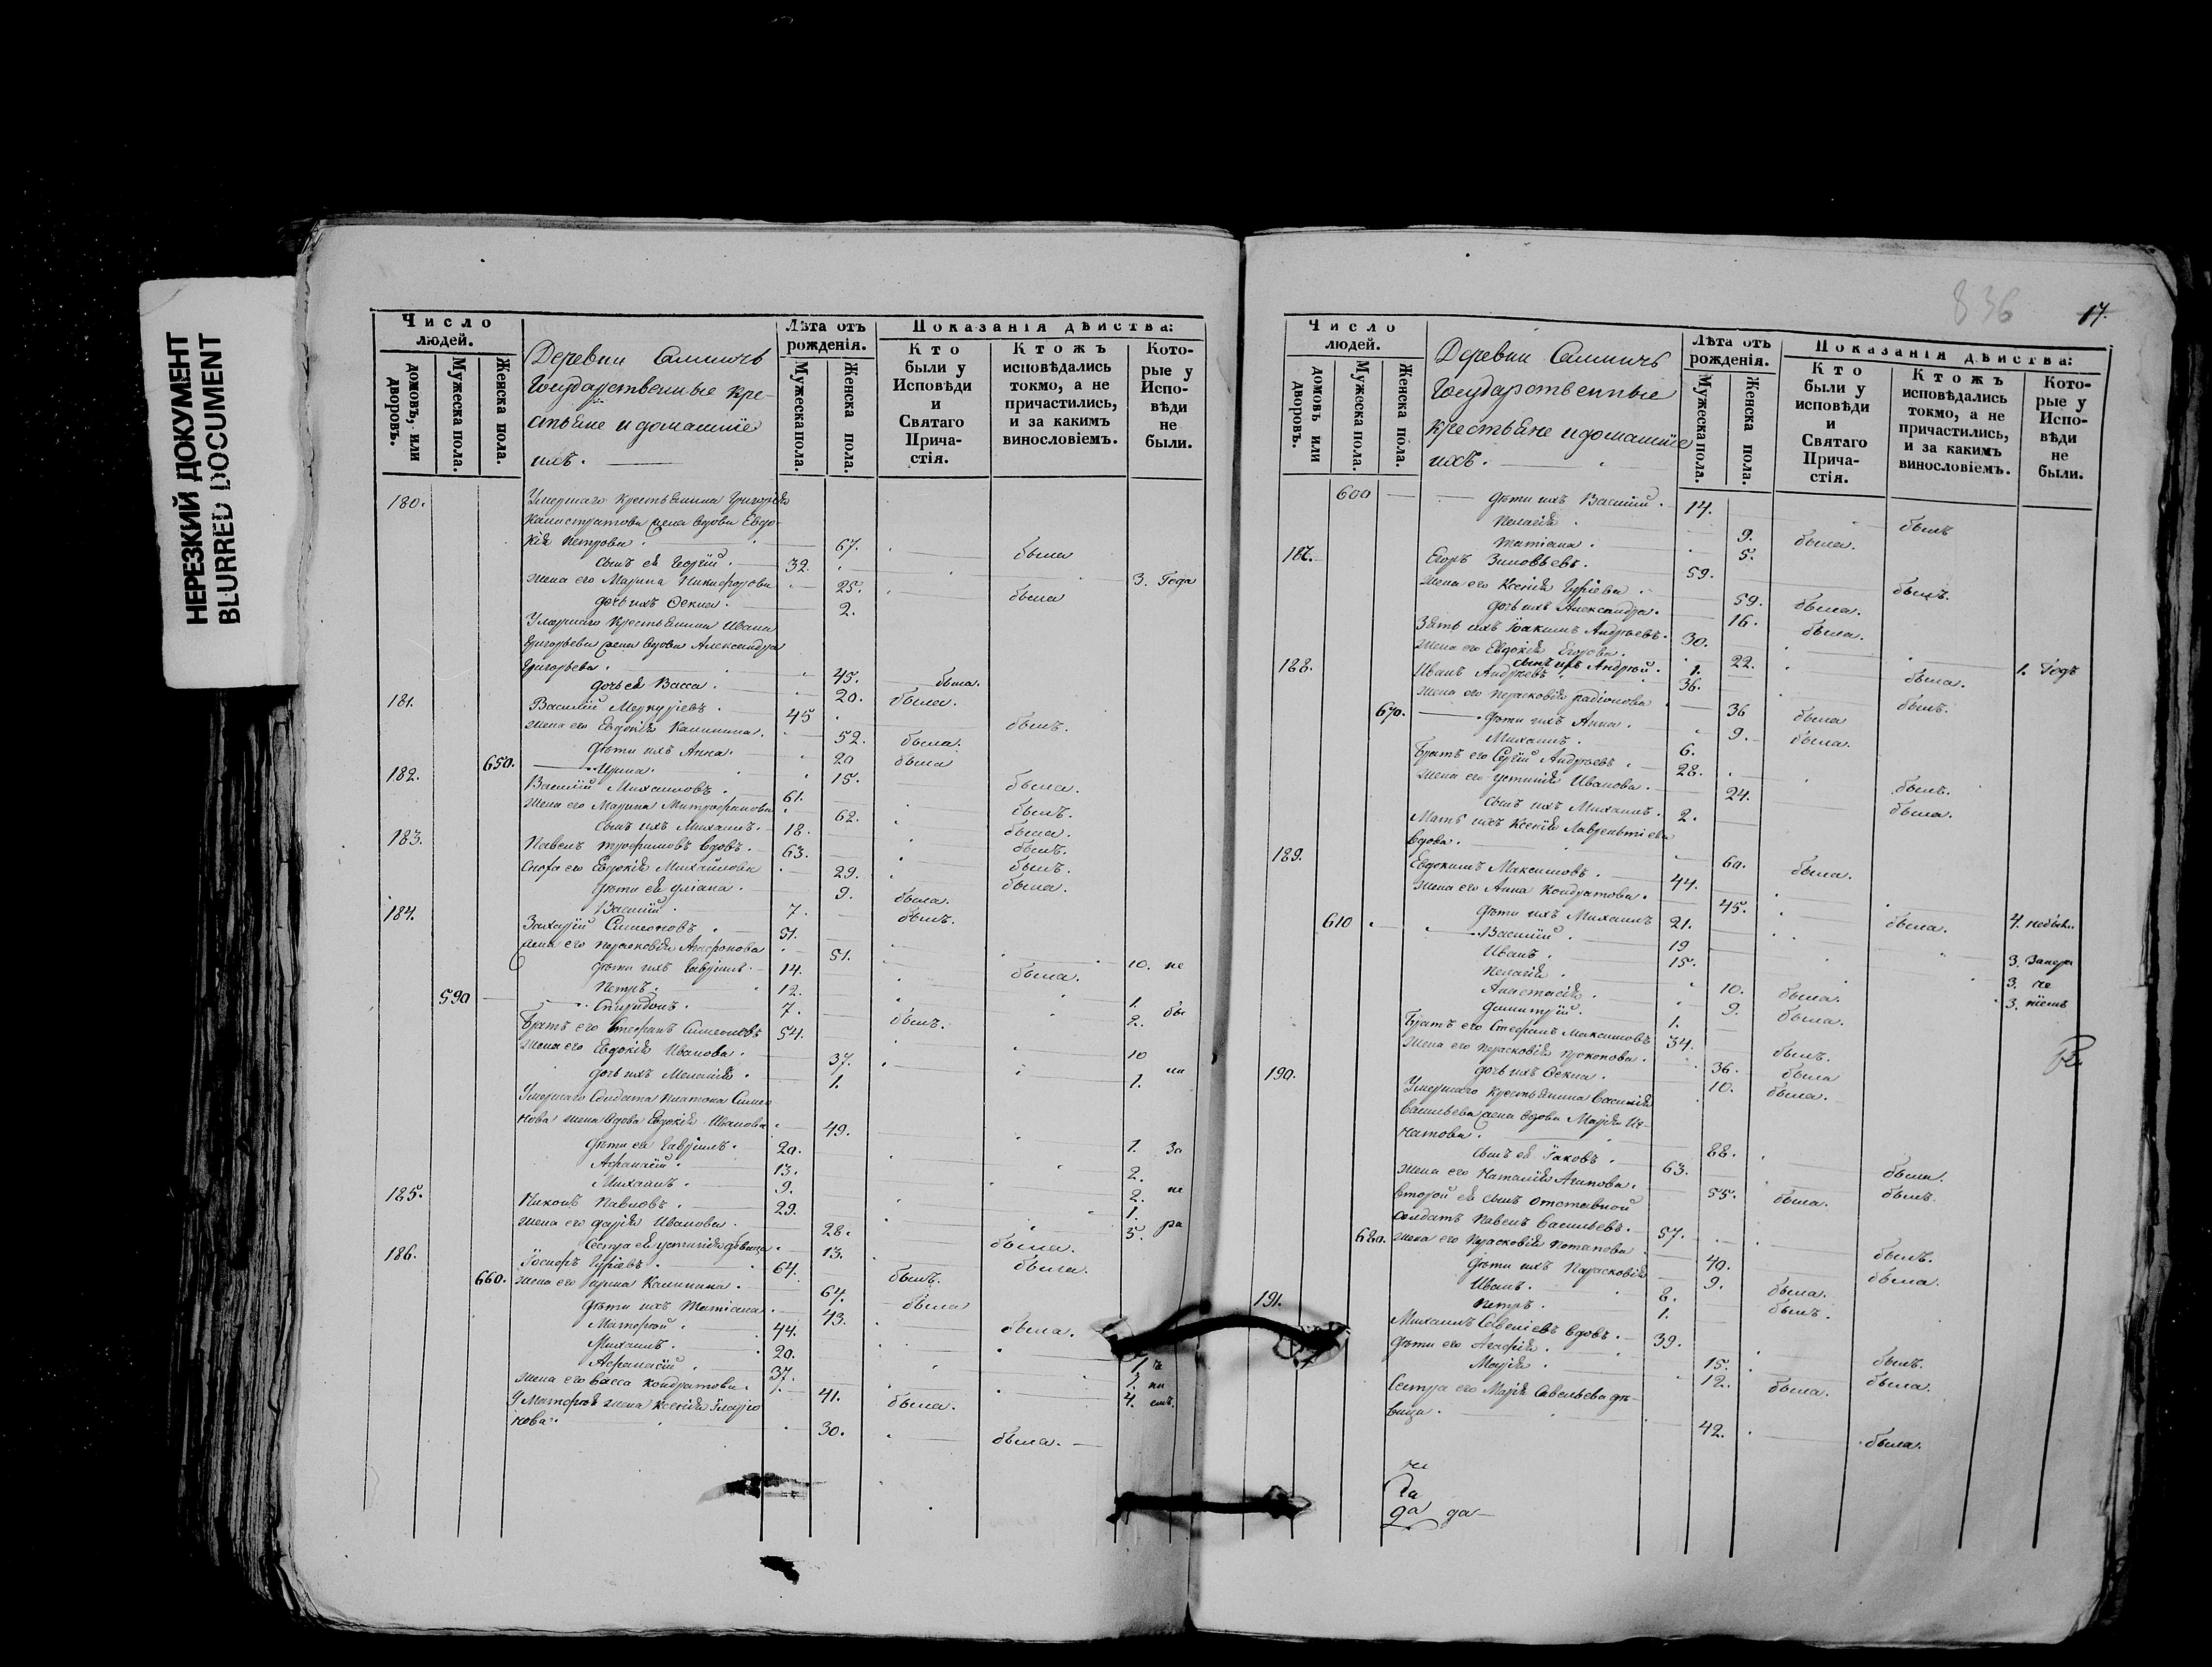 НЕРЕЗКИЙ ДОКУМЕНТ
BLURRED DOCUMENT
Число людей.
домовъ, или дворовъ.
Мужеска пола.
Женска пола.
Деревни
Государственные кре-
стьяне и домашніе
ихъ.
Лѣта отъ рожденія.
Мужеска пола.
Женска пола.
Показанія дѣйства:
Кто были у Исповѣди и Святаго Прича- стія.
Ктожъ исповѣдались токмо, а не причастились, и за какимъ винословіемъ.
Кото- рые у Испо- вѣди не были.
180. Умершаго крестьянина Григорія
Калистратова жена вдова Евдо-
кія Петрова. 67. была
сынъ ея Георгій. 32. 3. Года
жена его Марина Никифорова 25. была
дочь ихъ Фекла. 2.
Умершаго крестьянина Ивана
Григорьева жена вдова Александра
Григорьева. 45. была.
дочь ея Васса. 20. была.
181. Василій Меркуріевъ. 45 былъ.
жена его Евдокія Калинина. 52. была.
дѣти ихъ Анна. 20 была
650. Ирина. 15. была.
182. Василій Михаиловъ. 61. былъ.
жена его Марина Митрофанова 62. была.
сынъ ихъ Михаилъ. 18. былъ.
183. Павелъ Трофимовъ вдовъ. 63. былъ.
Сноха его Евдокія Михайлова 29. была.
дѣти ея Уліана. 9. была.
Василій 7. былъ.
184. Захарій Симеоновъ. 51.
жена его Парасковія Агафонова 51. была.
дѣти ихъ Гавріилъ. 14. 10. не
Петръ. 12. 1.
590 Спиридонъ. 7. былъ. 2. бы
Братъ его Стефанъ Симеоновъ 54. 10
жена его Евдокія Иванова. 37. 1. ли
дочь ихъ Меланія. 1.
Умершаго Солдата Платона Симео
нова жена вдова Евдокія Иванова. 49. 1. За
дѣти ея Гавріилъ. 20. 2.
Афанасій. 13. 2. не
Михаилъ. 9. 1.
185. Никонъ Павловъ. 29. 5. ра
жена его Дарія Иванова. 28. была.
Сестра ея Устинія дѣвица. 13. была.
186. Іосифъ Гуріевъ. 64. былъ.
660. жена его Ирина Калинина. 64. была
дѣти ихъ Татіана. 43. была.
Матфей. 44. 1.
Михаилъ. 20. 1. ні
Афанасій 37. 4. емъ.
жена его Васса Кондратова. 41. была.
У Матфея жена Ксенія Иларіо
нова. 30. была.
836
17.
Число людей.
домовъ или дворовъ.
Мужеска пола.
Женска пола.
Деревни
Государственные
крестьяне и домашніе
ихъ.
Лѣта отъ рожденія.
Мужеска пола.
Женска пола.
Показанія дѣйства:
Кто были у исповѣди и Святаго Прича- стія.
Ктожъ исповѣдались токмо, а не причастились, и за какимъ винословіемъ.
Кото- рые у Испо- вѣди не были.
600 дѣти ихъ Василій. 14. былъ
Пелагія. 9. была.
Татіана. 5.
187. Егоръ Зиновьевъ. 59. былъ.
жена его Ксенія Гуріева. 59. была.
дочь ихъ Александра. 16. была.
Зять ихъ Іоакимъ Андреевъ. 30. 1. Годъ
жена его Евдокія Егорова. 22. была.
сынъ ихъ Андрей. 1.
188. Иванъ Андреевъ. 36. былъ.
жена его Парасковія Радіонова 36 была
670. дѣти ихъ Анна. 9. была.
Михаилъ. 6.
Братъ его Сергій Андреевъ. 28. былъ.
жена его Устинія Иванова. 24. была.
сынъ ихъ Михаилъ. 2.
Мать ихъ Ксенія Лаврентіева
вдова. 60. была.
189. Евдокимъ Максимовъ. 44. 4. небылъ
жена его Анна Кондратова. 45. была.
дѣти ихъ Михаилъ 21. 3.
610 Василій. 19 3. не
Иванъ. 15. 3.
Пелагія. 10. была.
Анастасія. 9. была.
Димитрій. 1.
Братъ его Стефанъ Максимовъ 34. былъ.
жена его Парасковія Прокопова. 36. была
дочь ихъ Фекла. 10. была.
190. Умершаго крестьянина Василія
Васильева жена вдова Марія Иг-
натова. 88. была.
сынъ ея Іаковъ. 63. былъ.
жена его Наталія Агапова. 55. была.
Второй ея сынъ отставной
солдатъ Павелъ Васильевъ. 57. былъ.
680. жена его Парасковія Потапова 40. была.
дѣти ихъ Парасковія 9. была.
Иванъ. 8. былъ.
Петръ. 1.
191. Михаилъ Савеліевъ вдовъ. 39. былъ.
дѣти его Агафія. 15. была.
Марія. 12. была.
Сестра его Марія Савельева дѣ-
вица. 42. была.
да
да да